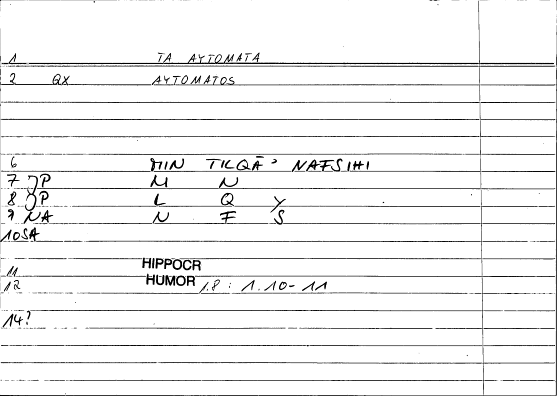 1 TA AYTOMATA
2 QX AYTOMATOS
6 MIN TILQĀ' NAFSIHI
7 JP M N
8 JP L Q Y
9 NA N F S
10 SA
11 HIPPOCR
12 HUMOR 1.8 : 1.10-11
14?